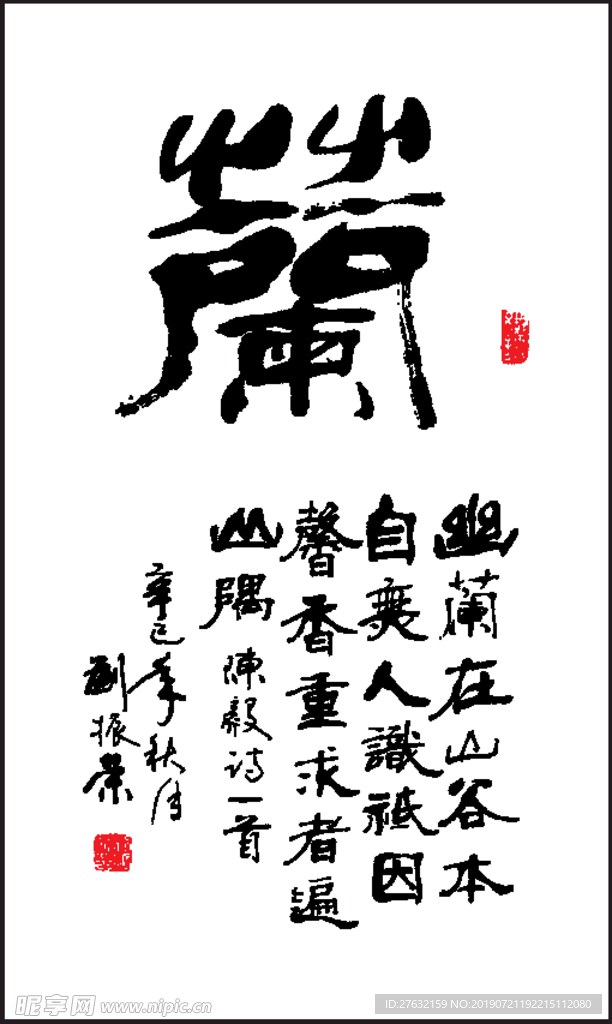 蘭
幽蘭在山谷本
自無人識祗因
馨香重求者遍
山隅 陳毅诗一首
辛巳年秋
劉振榮
昵享网 www.nipic.cn
ID:27632159 NO:20190721192215112080